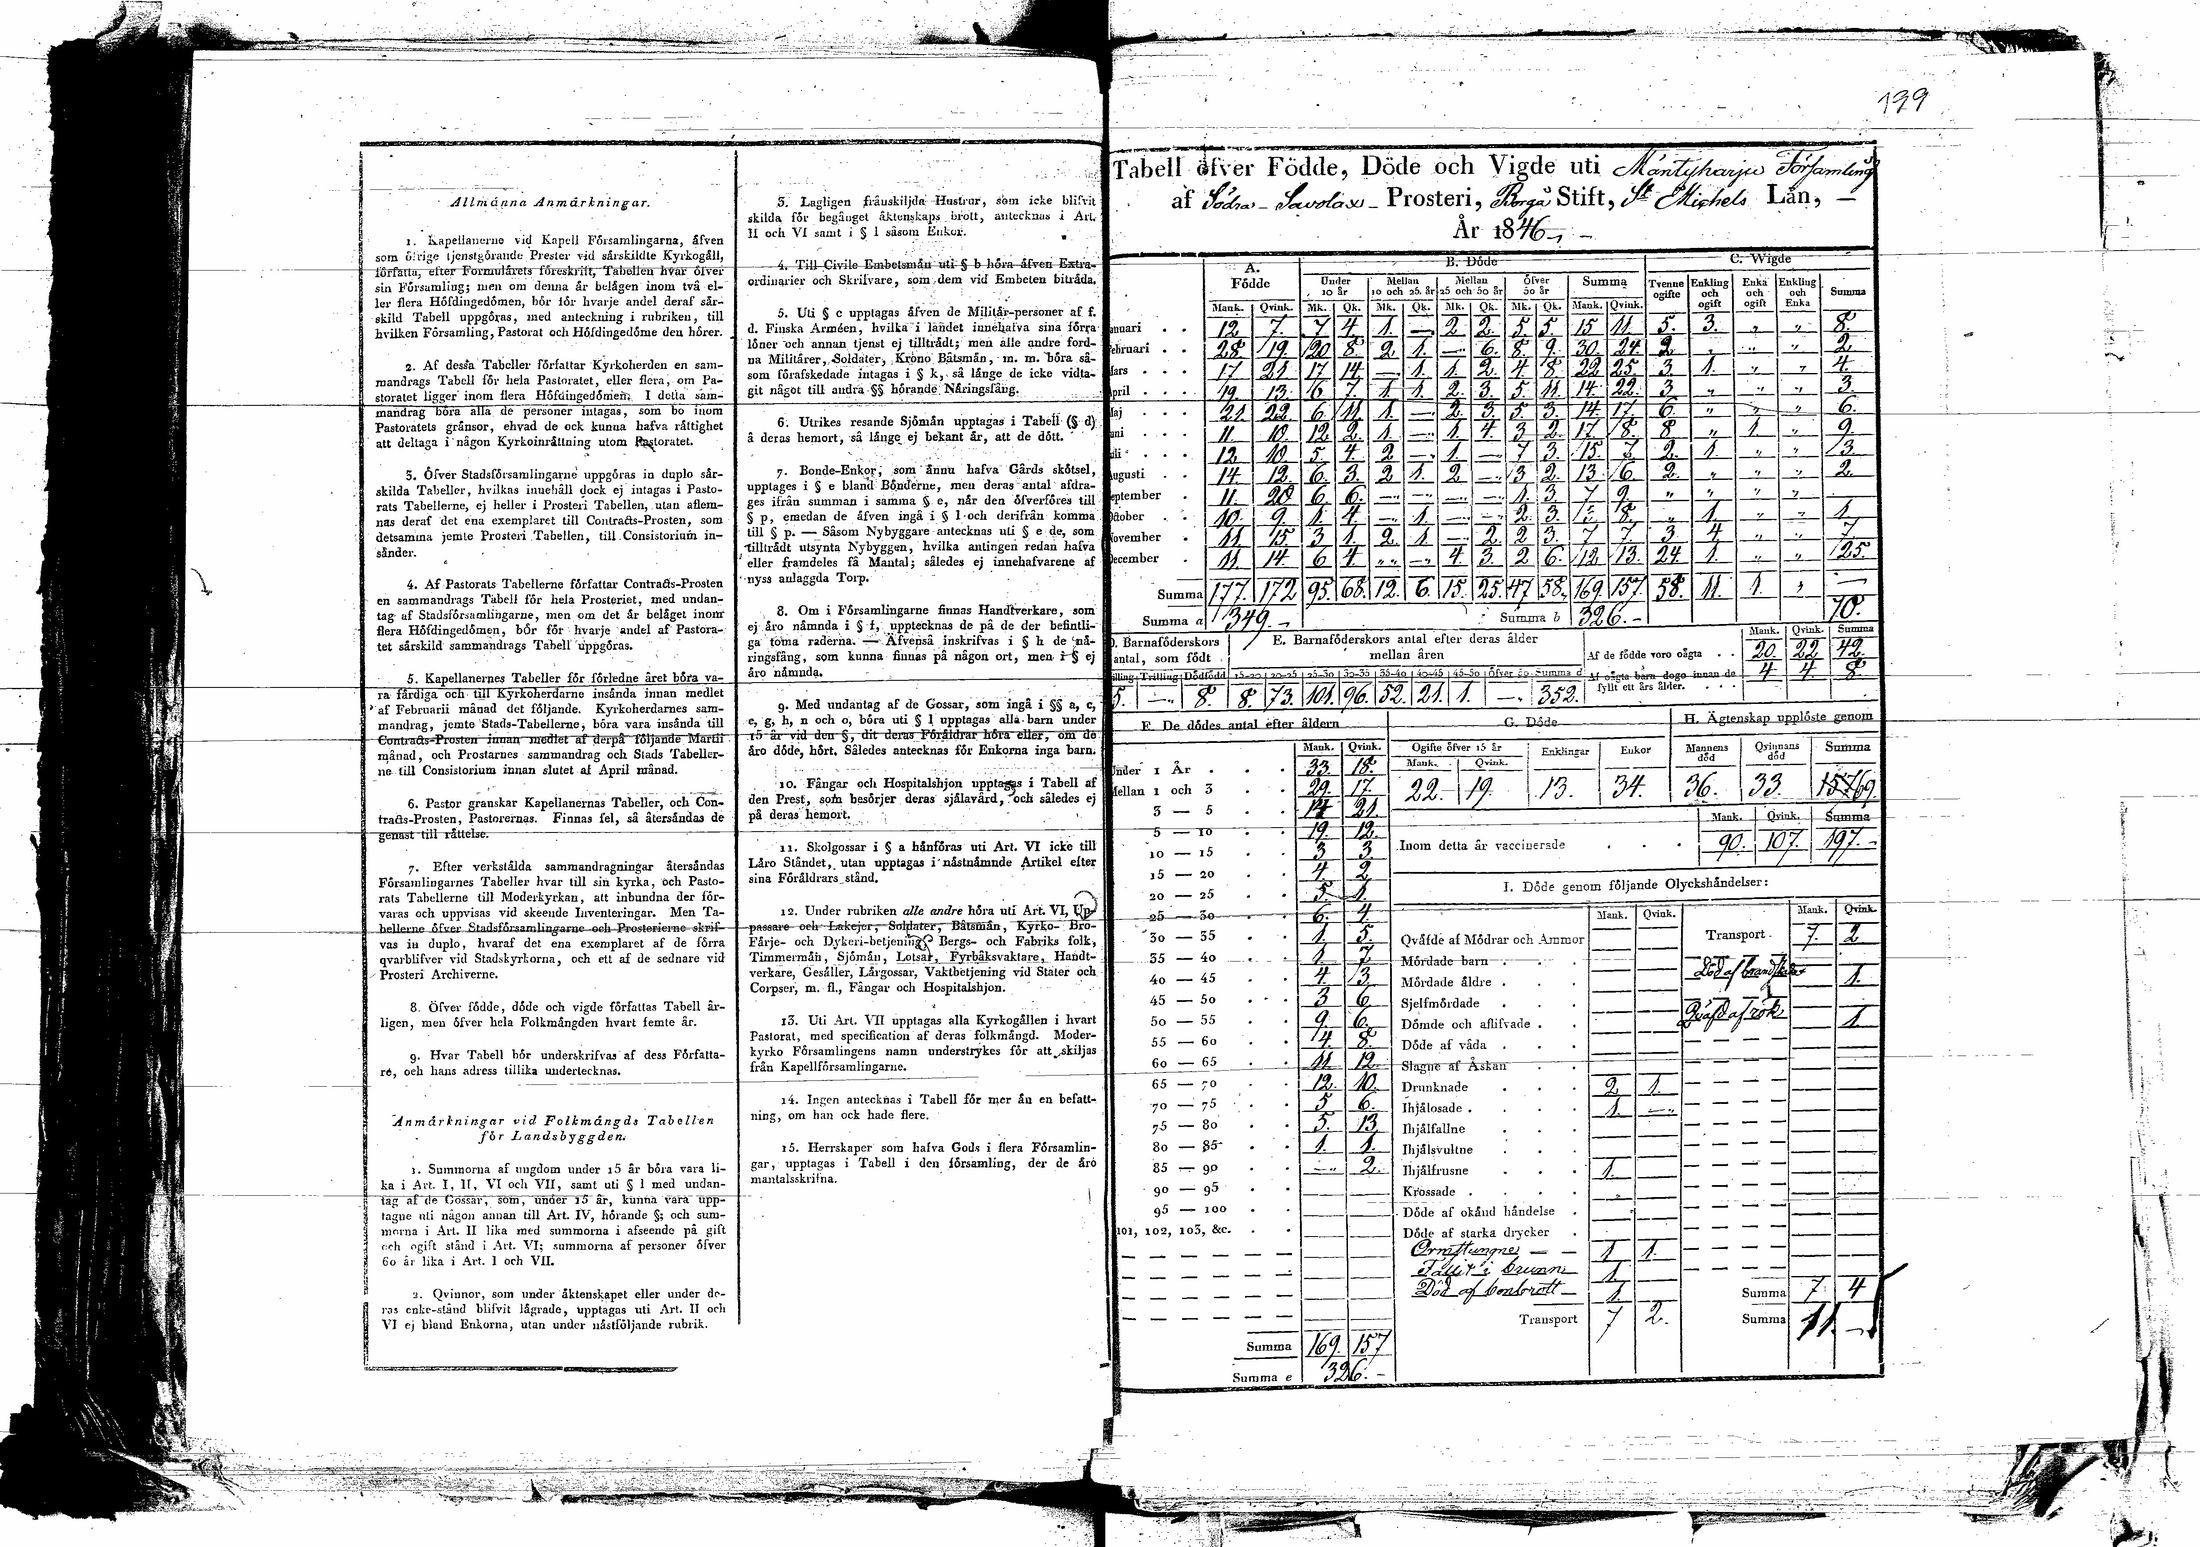 Allmänna Anmärkningar.
1. Kapellanerne vid Kapell Församlingarna, äfven
som öfrige tjenstgörande Prester vid särskildte Kyrkogäll,
författa, efter Formulärets föreskrift, Tabellen hvar öfver
sin Församling; men om denna är belägen inom två el-
ler flera Höfdingedömen, bör för hvarje andel deraf sär-
skild Tabell uppgöras, med anteckning i rubriken, till
hvilken Församling, Pastorat och Höfdingedöme den hörer.
2. Af dessa Tabeller författar Kyrkoherden en sam-
mandrags Tabell för hela Pastoratet, eller flera, om Pa-
storatet ligger inom flera Höfdingedömen. I detta sam-
mandrag böra alla de personer intagas, som bo inom
Pastoratets gränsor, ehvad de ock kunna hafva rättighet
att deltaga i någon Kyrkoinrättning utom Pastoratet.
3. Öfver Stadsförsamlingarne uppgöras in duplo sär-
skilda Tabeller, hvilkas innehåll dock ej intagas i Pasto-
rats Tabellerne, ej heller i Prosteri Tabellen, utan aflem-
nas deraf det ena exemplaret till Contracts-Prosten, som
detsamma jemte Prosteri Tabellen, till Consistorium in-
sänder.
4. Af Pastorats Tabellerne författar Contracts-Prosten
en sammandrags Tabell för hela Prosteriet, med undan-
tag af Stadsförsamlingarne, men om det är beläget inom
flera Höfdingedömen, bör för hvarje andel af Pastora-
tet särskild sammandrags Tabell uppgöras.
5. Kapellanernes Tabeller för förledne året böra va-
ra färdiga och till Kyrkoherdarne insända innan medlet
af Februarii månad det följande. Kyrkoherdarnes sam-
mandrag, jemte Stads-Tabellerne, böra vara insända till
Contracts-Prosten innan medlet af derpå följande Martii
månad, och Prostarnes sammandrag och Stads Tabeller-
ne till Consistorium innan slutet af April månad.
6. Pastor granskar Kapellanernas Tabeller, och Con-
tracts-Prosten, Pastorernas. Finnas fel, så återsändas de
genast till rättelse.
7. Efter verkställda sammandragningar återsändas
Församlingarnes Tabeller hvar till sin kyrka, och Pasto-
rats Tabellerne till Moderkyrkan, att inbundna der för-
varas och uppvisas vid skeende Inventeringar. Men Ta-
bellerne öfver Stadsförsamlingarne och Prosterierne skrif-
vas in duplo, hvaraf det ena exemplaret af de förra
qvarblifver vid Stadskyrkorna, och ett af de sednare vid
Prosteri Archiverne.
8. Öfver födde, döde och vigde författas Tabell år-
ligen, men öfver hela Folkmängden hvart femte år.
9. Hvar Tabell bör underskrifvas af dess Författa-
re, och hans adress tillika undertecknas.
Anmärkningar vid Folkmängds Tabellen
för Landsbyggden.
1. Summorna af ungdom under 15 år böra vara li-
ka i Art. I, II, VI och VII, samt uti § l med undan-
tag af de Gossar, som, under 15 år, kunna vara upp-
tagne uti någon annan till Art. IV, hörande §; och sum-
morna i Art. II lika med summorna i afseende på gift
och ogift stånd i Art. VI; summorna af personer öfver
60 år lika i Art. I och VII.
2. Qvinnor, som under äktenskapet eller under de-
ras enke-stånd blifvit lägrade, upptagas uti Art. II och
VI ej bland Enkorna, utan under nästföljande rubrik.
3. Lagligen frånskiljda Hustrur, som icke blifvit
skilda för begånget äktenskaps brott, antecknas i Art.
II och VI samt i § l såsom Enkor.
4. Till Civile Embetsmän uti § b höra äfven Extra-
ordinarier och Skrifvare, som dem vid Embeten biträda.
5. Uti § c upptagas äfven de Militär-personer af f.
d. Finska Arméen, hvilka i landet innehafva sina förra
löner och annan tjenst ej tillträdt; men alle andre ford-
na Militärer, Soldater, Krono Båtsmän, m. m. böra så-
som förafskedade intagas i § k, så länge de icke vidta-
git något till andra §§ hörande Näringsfång.
6. Utrikes resande Sjömän upptagas i Tabell (§ d)
å deras hemort, så länge ej bekant är, att de dött.
7. Bonde-Enkor, som ännu hafva Gårds skötsel,
upptages i § e bland Bönderne, men deras antal afdra-
ges ifrån summan i samma § e, när den öfverföres till
§ p, emedan de äfven ingå i § l och derifrån komma
till § p. — Såsom Nybyggare antecknas uti § e de, som
tillträdt utsynta Nybyggen, hvilka antingen redan hafva
eller framdeles få Mantal; således ej innehafvarene af
nyss anlaggda Torp.
8. Om i Församlingarne finnas Handtverkare, som
ej äro nämnda i § f, upptecknas de på de der befintli-
ga toma raderna. — Äfvenså inskrifvas i § h de nä-
ringsfång, som kunna finnas på någon ort, men i § ej
äro nämnda.
9. Med undantag af de Gossar, som ingå i §§ a, c,
e, g, h, n och o, böra uti § l upptagas alla barn under
15 år vid den §, dit deras Föräldrar höra eller, om de
äro döde, hört. Således antecknas för Enkorna inga barn.
10. Fångar och Hospitalshjon upptagas i Tabell af
den Prest, som besörjer deras själavård, och således ej
på deras hemort.
11. Skolgossar i § a hänföras uti Art. VI icke till
Läro Ståndet, utan upptagas i nästnämnde Artikel efter
sina Föräldrars stånd.
12. Under rubriken alle andre höra uti Art. VI, Up-
passare och Lakejer, Soldater, Båtsmän, Kyrko- Bro-
Färje- och Dykeri-betjening, Bergs- och Fabriks folk,
Timmermän, Sjömän, Lotsar, Fyrbåksvaktare, Handt-
verkare, Gesäller, Lärgossar, Vaktbetjening vid Stater och
Corpser, m. fl., Fångar och Hospitalshjon.
13. Uti Art. VII upptagas alla Kyrkogällen i hvart
Pastorat, med specification af deras folkmängd. Moder-
kyrko Församlingens namn understrykes för att skiljas
från Kapellförsamlingarne.
14. Ingen antecknas i Tabell för mer än en befatt-
ning, om han ock hade flere.
15. Herrskaper som hafva Gods i flera Församlin-
gar, upptagas i Tabell i den församling, der de äro
mantalsskrifna.
139
Tabell öfver Födde, Döde och Vigde uti Mäntyharju Församling
af Södra-Savolax Prosteri, Borgå Stift, St Michels Län,
År 1846
A. Födde B. Döde C. Wigde
Under 10 år Mellan 10 och 25 år Mellan 25 och 50 år Öfver 50 år Summa Tvenne ogifte Enkling och ogift Enka och ogift Enkling och Enka Summa
Mank. Qvink. Mk. Qk. Mk. Qk. Mk. Qk. Mk. Qk. Mank. Qvink.
anuari 12 7 7 4 1 — 2 2 5 5 15 11 5 3 „ „ 8
ebruari 28 19 20 8 2 1 — 6 8 9 30 24 2 „ „ „ 2
ars 17 21 17 14 — 1 1 2 4 8 22 25 3 1 „ „ 4
pril 19 13 6 7 1 1 2 3 5 11 14 22 3 „ „ „ 3
aj 21 22 6 11 1 — 2 3 5 3 14 17 6 „ „ „ 6
uni 11 10 12 2 1 — 1 4 3 2 17 8 8 „ 1 „ 9
uli 12 10 5 4 2 — 1 — 7 3 15 7 2 1 „ „ 3
ugusti 14 12 6 3 2 1 2 — 3 2 13 6 2 „ „ „ 2
eptember 11 20 6 6 — — — — 1 3 7 9 „ „ „ „
ctober 10 9 1 4 — 1 — — 2 3 8 „ 1 „ „ 1
ovember 11 15 3 1 2 1 — 2 2 3 7 7 3 4 „ „ 7
ecember 11 14 6 4 „ — 4 3 2 6 12 13 24 1 „ „ 25
Summa 177 172 95 68 12 6 15 25 47 58 169 157 58 11 1 „ —
Summa a 349 Summa b 326 70
D. Barnaföderskors antal, som födt
E. Barnaföderskors antal efter deras ålder mellan åren
Mank. Qvink. Summa
Af de födde voro oägta 20 22 42
Af oägta barn dogo innan de fyllt ett års ålder. 4 4 8
illing Trilling Dödfödt 15-20 20-25 25-30 30-35 35-40 40-45 45-50 Öfver 50 Summa d
5 — 8 8 73 101 96 52 21 1 — 352
F. De dödes antal efter åldern
Mank. Qvink.
Under 1 År 33 18
Mellan 1 och 3 29 17
3 — 5 14 21
5 — 10 19 12
10 — 15 3 3
15 — 20 4 2
20 — 25 5 1
25 — 30 6 4
30 — 35 1 5
35 — 40 1 7
40 — 45 4 3
45 — 50 3 6
50 — 55 9 6
55 — 60 14 8
60 — 65 11 12
65 — 70 12 10
70 — 75 5 6
75 — 80 5 13
80 — 85 1 1
85 — 90 — 2
90 — 95
95 — 100
101, 102, 103, &c.
Summa 169 157
Summa e 326
G. Döde
Ogifte öfver 15 år Enklingar Enkor
Mank. Qvink.
22 19 13 34
H. Ägtenskap upplöste genom
Mannens död Qvinnans död Summa
36 33 69
Mank. Qvink. Summa
Inom detta år vaccinerade 90 107 197
I. Döde genom följande Olyckshändelser:
Mank. Qvink.
Qväfde af Mödrar och Ammor
Mördade barn
Mördade äldre
Sjelfmördade
Dömde och aflifvade
Döde af våda
Slagne af Åskan
Drunknade 2 1
Ihjälosade 1 —
Ihjälfallne
Ihjälsvultne
Ihjälfrusne 1
Krossade
Döde af okänd händelse
Döde af starka drycker
Ormstungne 1 1
Fallit i brunn 1
Död af benbrott 1
Transport 7 2
Mank. Qvink.
Transport 7 2
Död af 1
Qväfd af rök 1
Summa 7 4
Summa 11